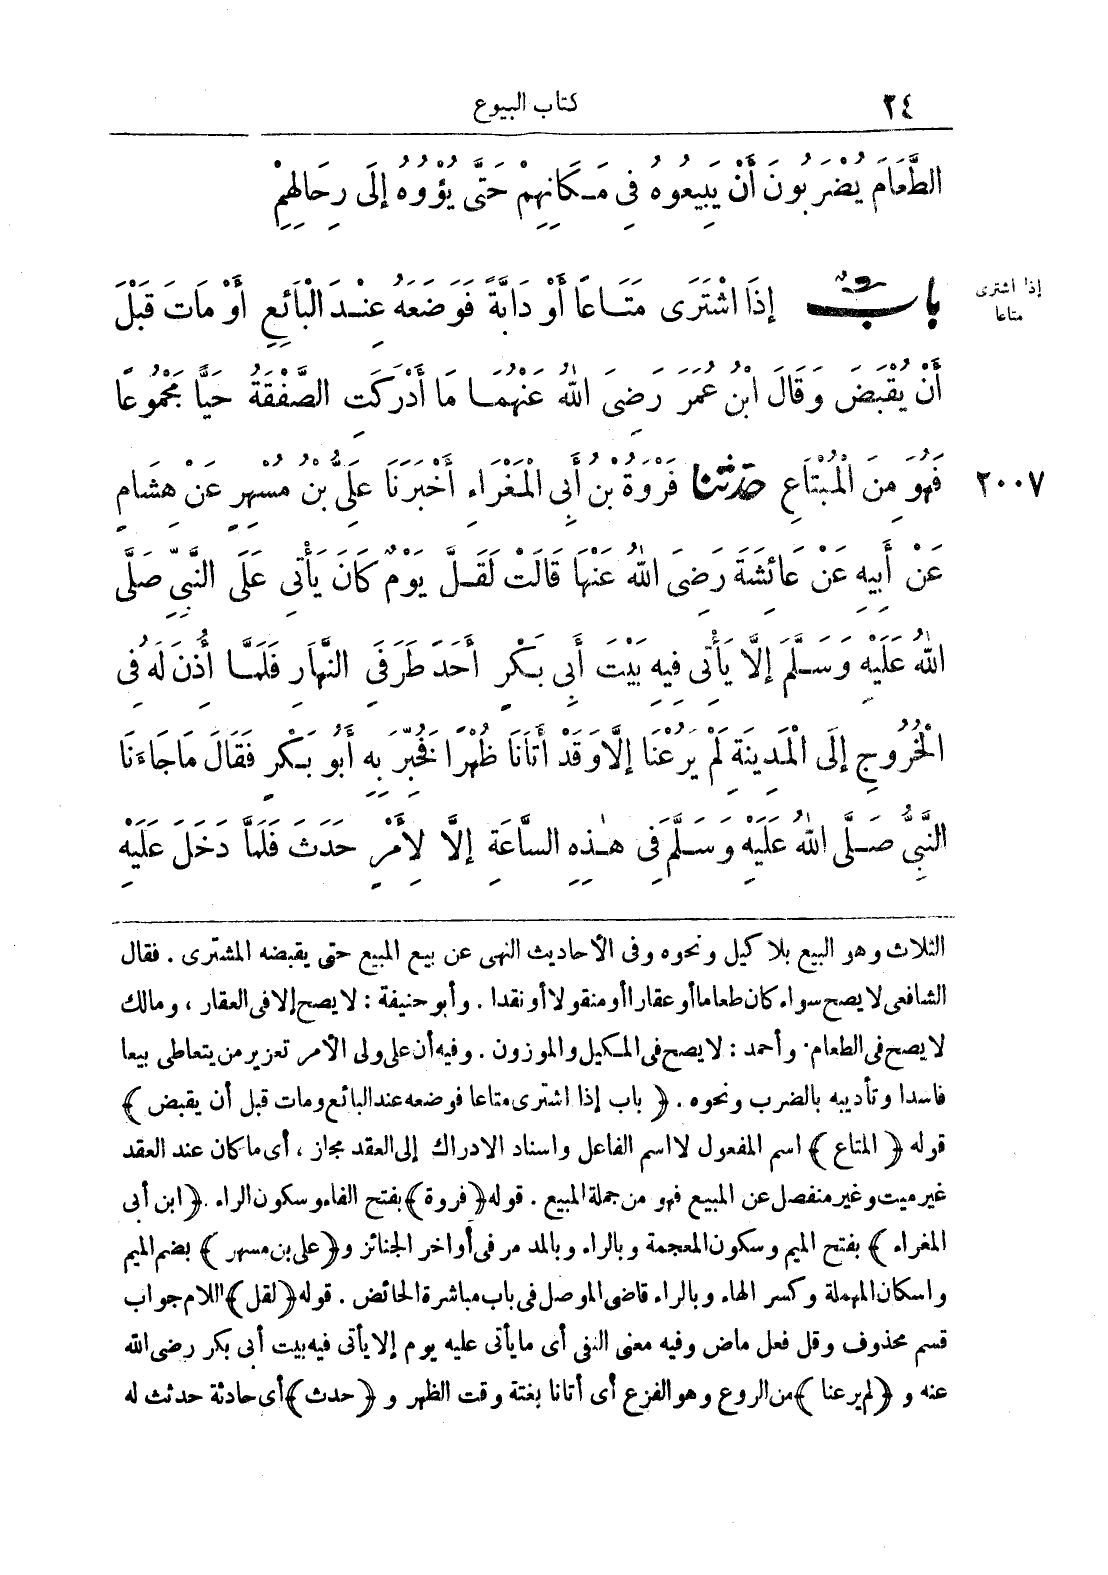 ٣٤ كتاب البيوع
الطَّعَامَ يُضْرَبُونَ أَنْ يَبِيعُوهُ فِى مَكَانِهِمْ حَتَّى يُؤْوُوهُ إِلَى رِحَالِهِمْ
بابٌ إِذَا اشْتَرَى مَتَاعًا أَوْ دَابَّةً فَوَضَعَهُ عِنْدَ الْبَائِعِ أَوْ مَاتَ قَبْلَ
إذا اشترى
متاعا
أَنْ يُقْبَضَ وَقَالَ ابْنُ عُمَرَ رَضِىَ اللهُ عَنْهُمَا مَا أَدْرَكَتِ الصَّفْقَةُ حَيًّا مَجْمُوعًا
٢٠٠٧ فَهُوَ مِنَ الْمُبْتَاعِ حَدَّثَنَا فَرْوَةُ بْنُ أَبِى الْمَغْرَاءِ أَخْبَرَنَا عَلِىُّ بْنُ مُسْهِرٍ عَنْ هِشَامٍ
عَنْ أَبِيهِ عَنْ عَائِشَةَ رَضِىَ اللهُ عَنْهَا قَالَتْ لَقَلَّ يَوْمٌ كَانَ يَأْتِى عَلَى النَّبِىِّ صَلَّى
اللهُ عَلَيْهِ وَسَلَّمَ إِلَّا يَأْتِى فِيهِ بَيْتَ أَبِى بَكْرٍ أَحَدَ طَرَفَىِ النَّهَارِ فَلَمَّا أُذِنَ لَهُ فِى
الْخُرُوجِ إِلَى الْمَدِينَةِ لَمْ يَرُعْنَا إِلَّا وَقَدْ أَتَانَا ظُهْرًا فَخُبِّرَ بِهِ أَبُو بَكْرٍ فَقَالَ مَا جَاءَنَا
النَّبِىُّ صَلَّى اللهُ عَلَيْهِ وَسَلَّمَ فِى هٰذِهِ السَّاعَةِ إِلَّا لِأَمْرٍ حَدَثَ فَلَمَّا دَخَلَ عَلَيْهِ
الثلاث وهو البيع بلا كيل ونحوه وفى الأحاديث النهى عن بيع المبيع حتى يقبضه المشترى . فقال
الشافعى لا يصح سواء كان طعاما أو عقارا أو منقولا أو نقدا . وأبو حنيفة : لا يصح إلا فى العقار ، ومالك
لا يصح فى الطعام . وأحمد : لا يصح فى المكيل والموزون . وفيه أن على ولى الأمر تعزير من يتعاطى بيعا
فاسدا وتأديبه بالضرب ونحوه . ﴿ باب إذا اشترى متاعا فوضعه عند البائع ومات قبل أن يقبض ﴾
قوله ﴿ المتاع ﴾ اسم المفعول لا اسم الفاعل واسناد الادراك إلى العقد مجاز ، أى ما كان عند العقد
غير ميت وغير منفصل عن المبيع فهو من جملة المبيع . قوله ﴿ فروة ﴾ بفتح الفاء وسكون الراء . ﴿ ابن أبى
المغراء ﴾ بفتح الميم وسكون المعجمة وبالراء وبالمد مر فى أواخر الجنائز و ﴿ على بن مسهر ﴾ بضم الميم
واسكان المهملة وكسر الهاء وبالراء قاضى الموصل فى باب مباشرة الحائض . قوله ﴿ لقل ﴾ اللام جواب
قسم محذوف وقل فعل ماض وفيه معنى النفى أى ما يأتى عليه يوم إلا يأتى فيه بيت أبى بكر رضى الله
عنه و ﴿ لم يرعنا ﴾ من الروع وهو الفزع أى أتانا بغتة وقت الظهر و ﴿ حدث ﴾ أى حادثة حدثت له